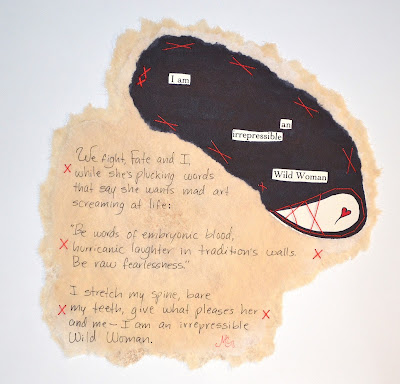 I am
an
irrepressible
Wild Woman
We fight, Fate and I,
while she's plucking words
that say she wants mad art
screaming at life:
"Be words of embryonic blood,
hurricanic laughter in tradition's walls.
Be raw fearlessness."
I stretch my spine, bare
my teeth, give what pleases her
and me—I am an irrepressible
Wild Woman.